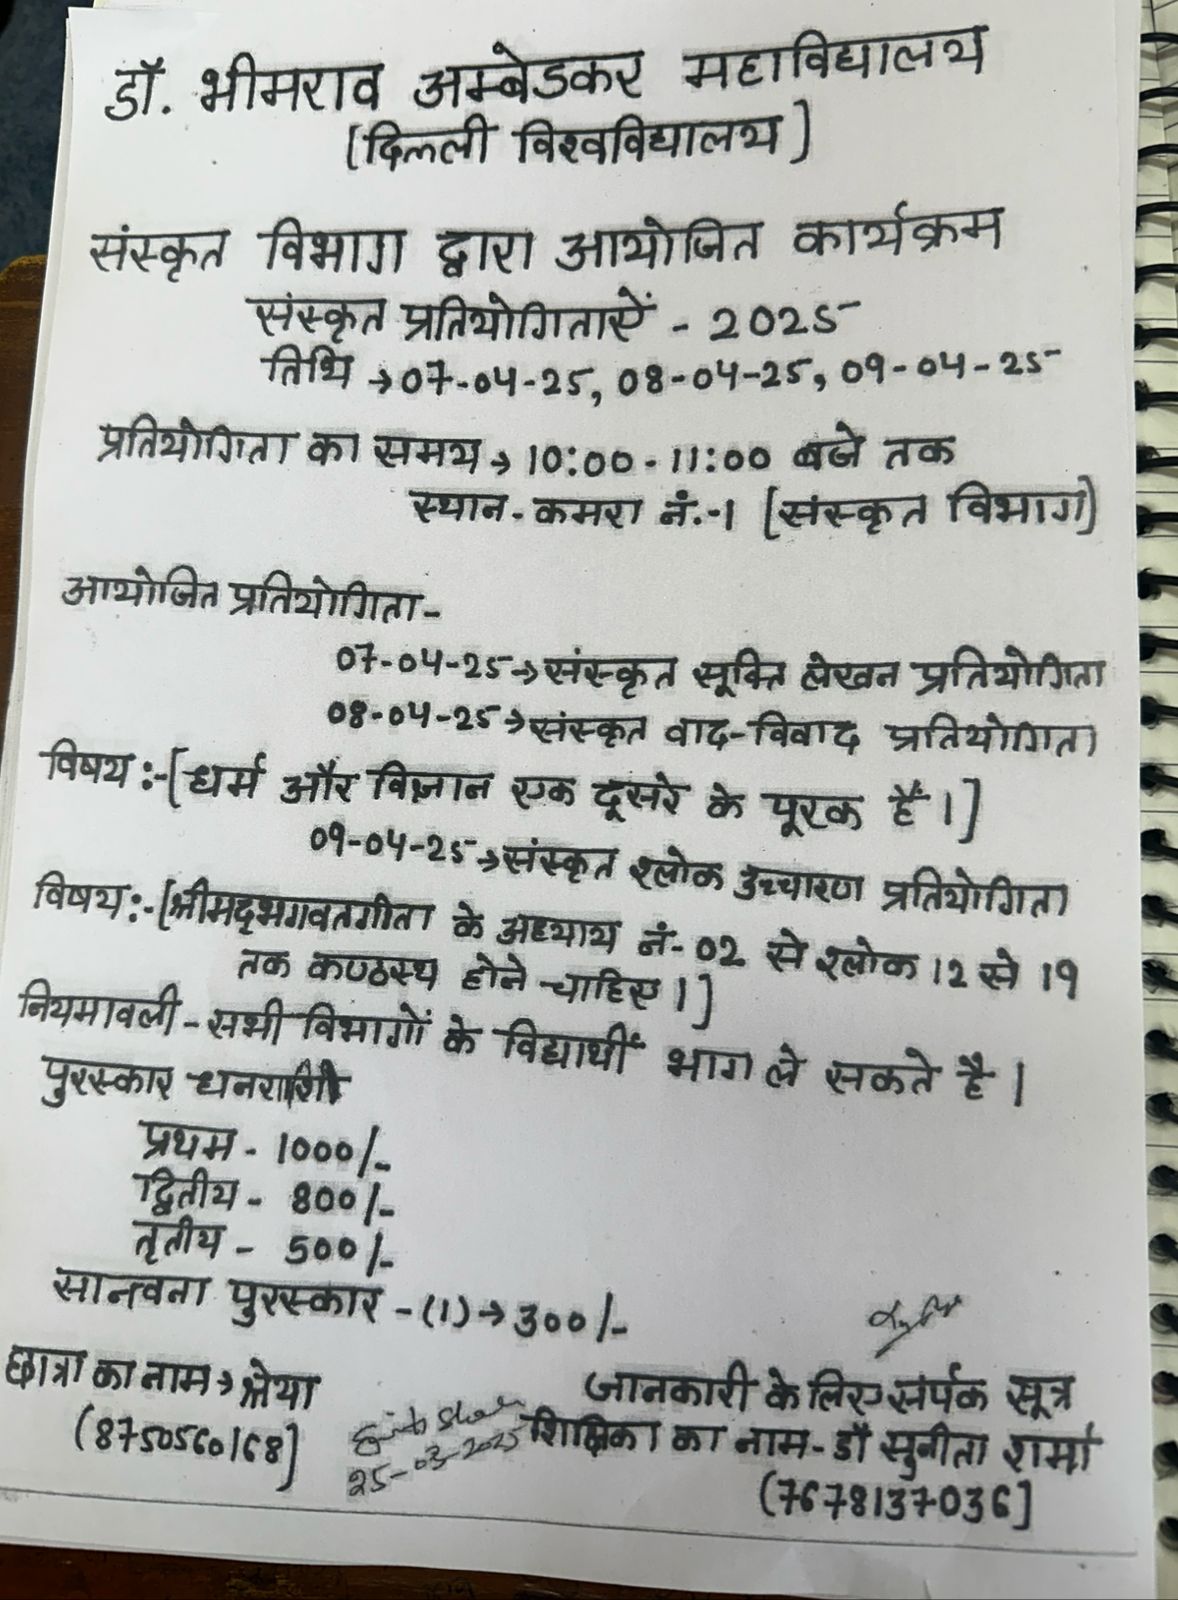 डॉ. भीमराव अम्बेडकर महाविद्यालय
[दिल्ली विश्वविद्यालय]
संस्कृत विभाग द्वारा आयोजित कार्यक्रम
संस्कृत प्रतियोगिताऐं - 2025
तिथि → 07-04-25, 08-04-25, 09-04-25
प्रतियोगिता का समय → 10:00 - 11:00 बजे तक
स्थान - कमरा नं.-1 [संस्कृत विभाग]
आयोजित प्रतियोगिता-
07-04-25 → संस्कृत सूक्ति लेखन प्रतियोगिता
08-04-25 → संस्कृत वाद-विवाद प्रतियोगिता
विषय :- [धर्म और विज्ञान एक दूसरे के पूरक हैं।]
09-04-25 → संस्कृत श्लोक उच्चारण प्रतियोगिता
विषय :- [श्रीमद्भगवतगीता के अध्याय नं- 02 से श्लोक 12 से 19
तक कण्ठस्थ होने चाहिए।]
नियमावली - सभी विभागों के विद्यार्थी भाग ले सकते है।
पुरस्कार धनराशि
प्रथम - 1000/-
द्वितीय - 800/-
तृतीय - 500/-
सान्त्वना पुरस्कार - (1) → 300/-
छात्रा का नाम → श्रेया
(8750560168]
25-03-2025
जानकारी के लिए संर्पक सूत्र
शिक्षिका का नाम - डॉ सुनीता शर्मा
(7678137036]